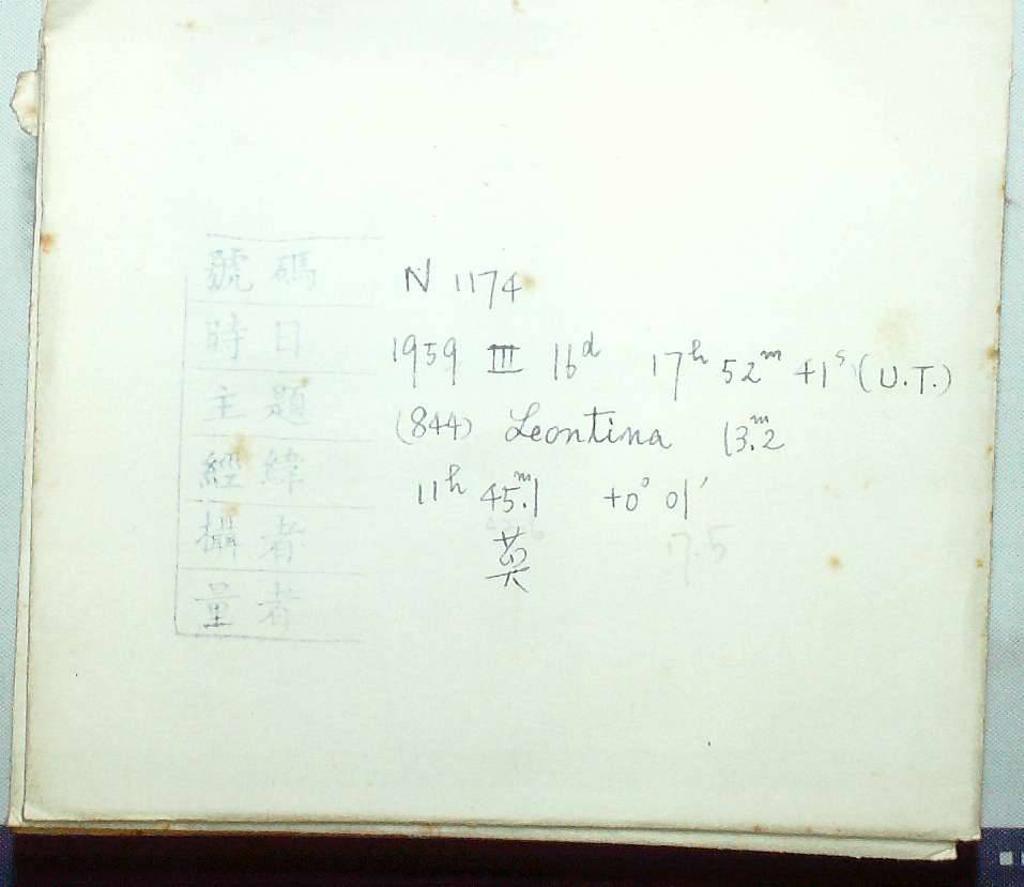 號碼 N 1174
時日 1959 III 16d 17h 52m +1s (U.T.)
主題 (844) Leontina 13.m2
經緯 11h 45.m1 +0° 01′
攝者 莫
量者